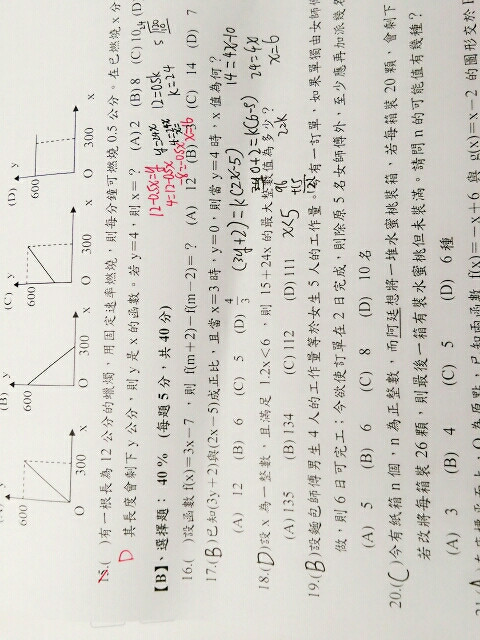 (B) y 600 O 300 x
(C) y 600 O 300 x
(D) y 600 O 300 x
600 O 300 x
15.( )有一根長為 12 公分的蠟燭，用固定速率燃燒，則每分鐘可燃燒 0.5 公分。在已燃燒 x 分
D 其長度會剩下 y 公分，則 y 是 x 的函數。若 y=4，則 x=？ (A) 2 (B) 8 (C) 10 (D)
12-0.5x=y
4=12-0.5x
-8=-0.5x
x=16
12=0.5k
k=24
【B】、選擇題： 40 % (每題 5 分，共 40 分)
16.( )設函數 f(x)=3x-7，則 f(m+2)-f(m-2)=？ (A) 12 (B) 13 (C) 14 (D) 7
17.(B)已知(3y+2)與(2x-5)成正比，且當 x=3 時，y=0，則當 y=4 時，x 值為何？
(A) 12 (B) 6 (C) 5 (D) 4/3
(3y+2)=k(2x-5)
0+2=k(6-5)
14=4x-10
24=4x
x=6
18.(D)設 x 為一整數，且滿足 1.2x<6，則 15+24x 的最大整數值為多少？
(A)135 (B)134 (C)112 (D)111
x<5
96
19.(B)設麵包師傅男生 4 人的工作量等於女生 5 人的工作量。有一訂單，如果單獨由女師傅
做，則 6 日可完工；今欲使訂單在 2 日完成，則除原 5 名女師傅外，至少應再加派幾名
(A) 5 (B) 6 (C) 8 (D) 10 名
20.(C)今有紙箱 n 個，n 為正整數，而阿廷想將一堆水蜜桃裝箱，若每箱裝 20 顆，會剩下
若改將每箱裝 26 顆，則最後一箱有裝水蜜桃但未裝滿。請問 n 的可能值有幾種？
(A) 3 (B) 4 (C) 5 (D) 6 種
f(x)=-x+6 與 g(x)=x-2 的圖形交於